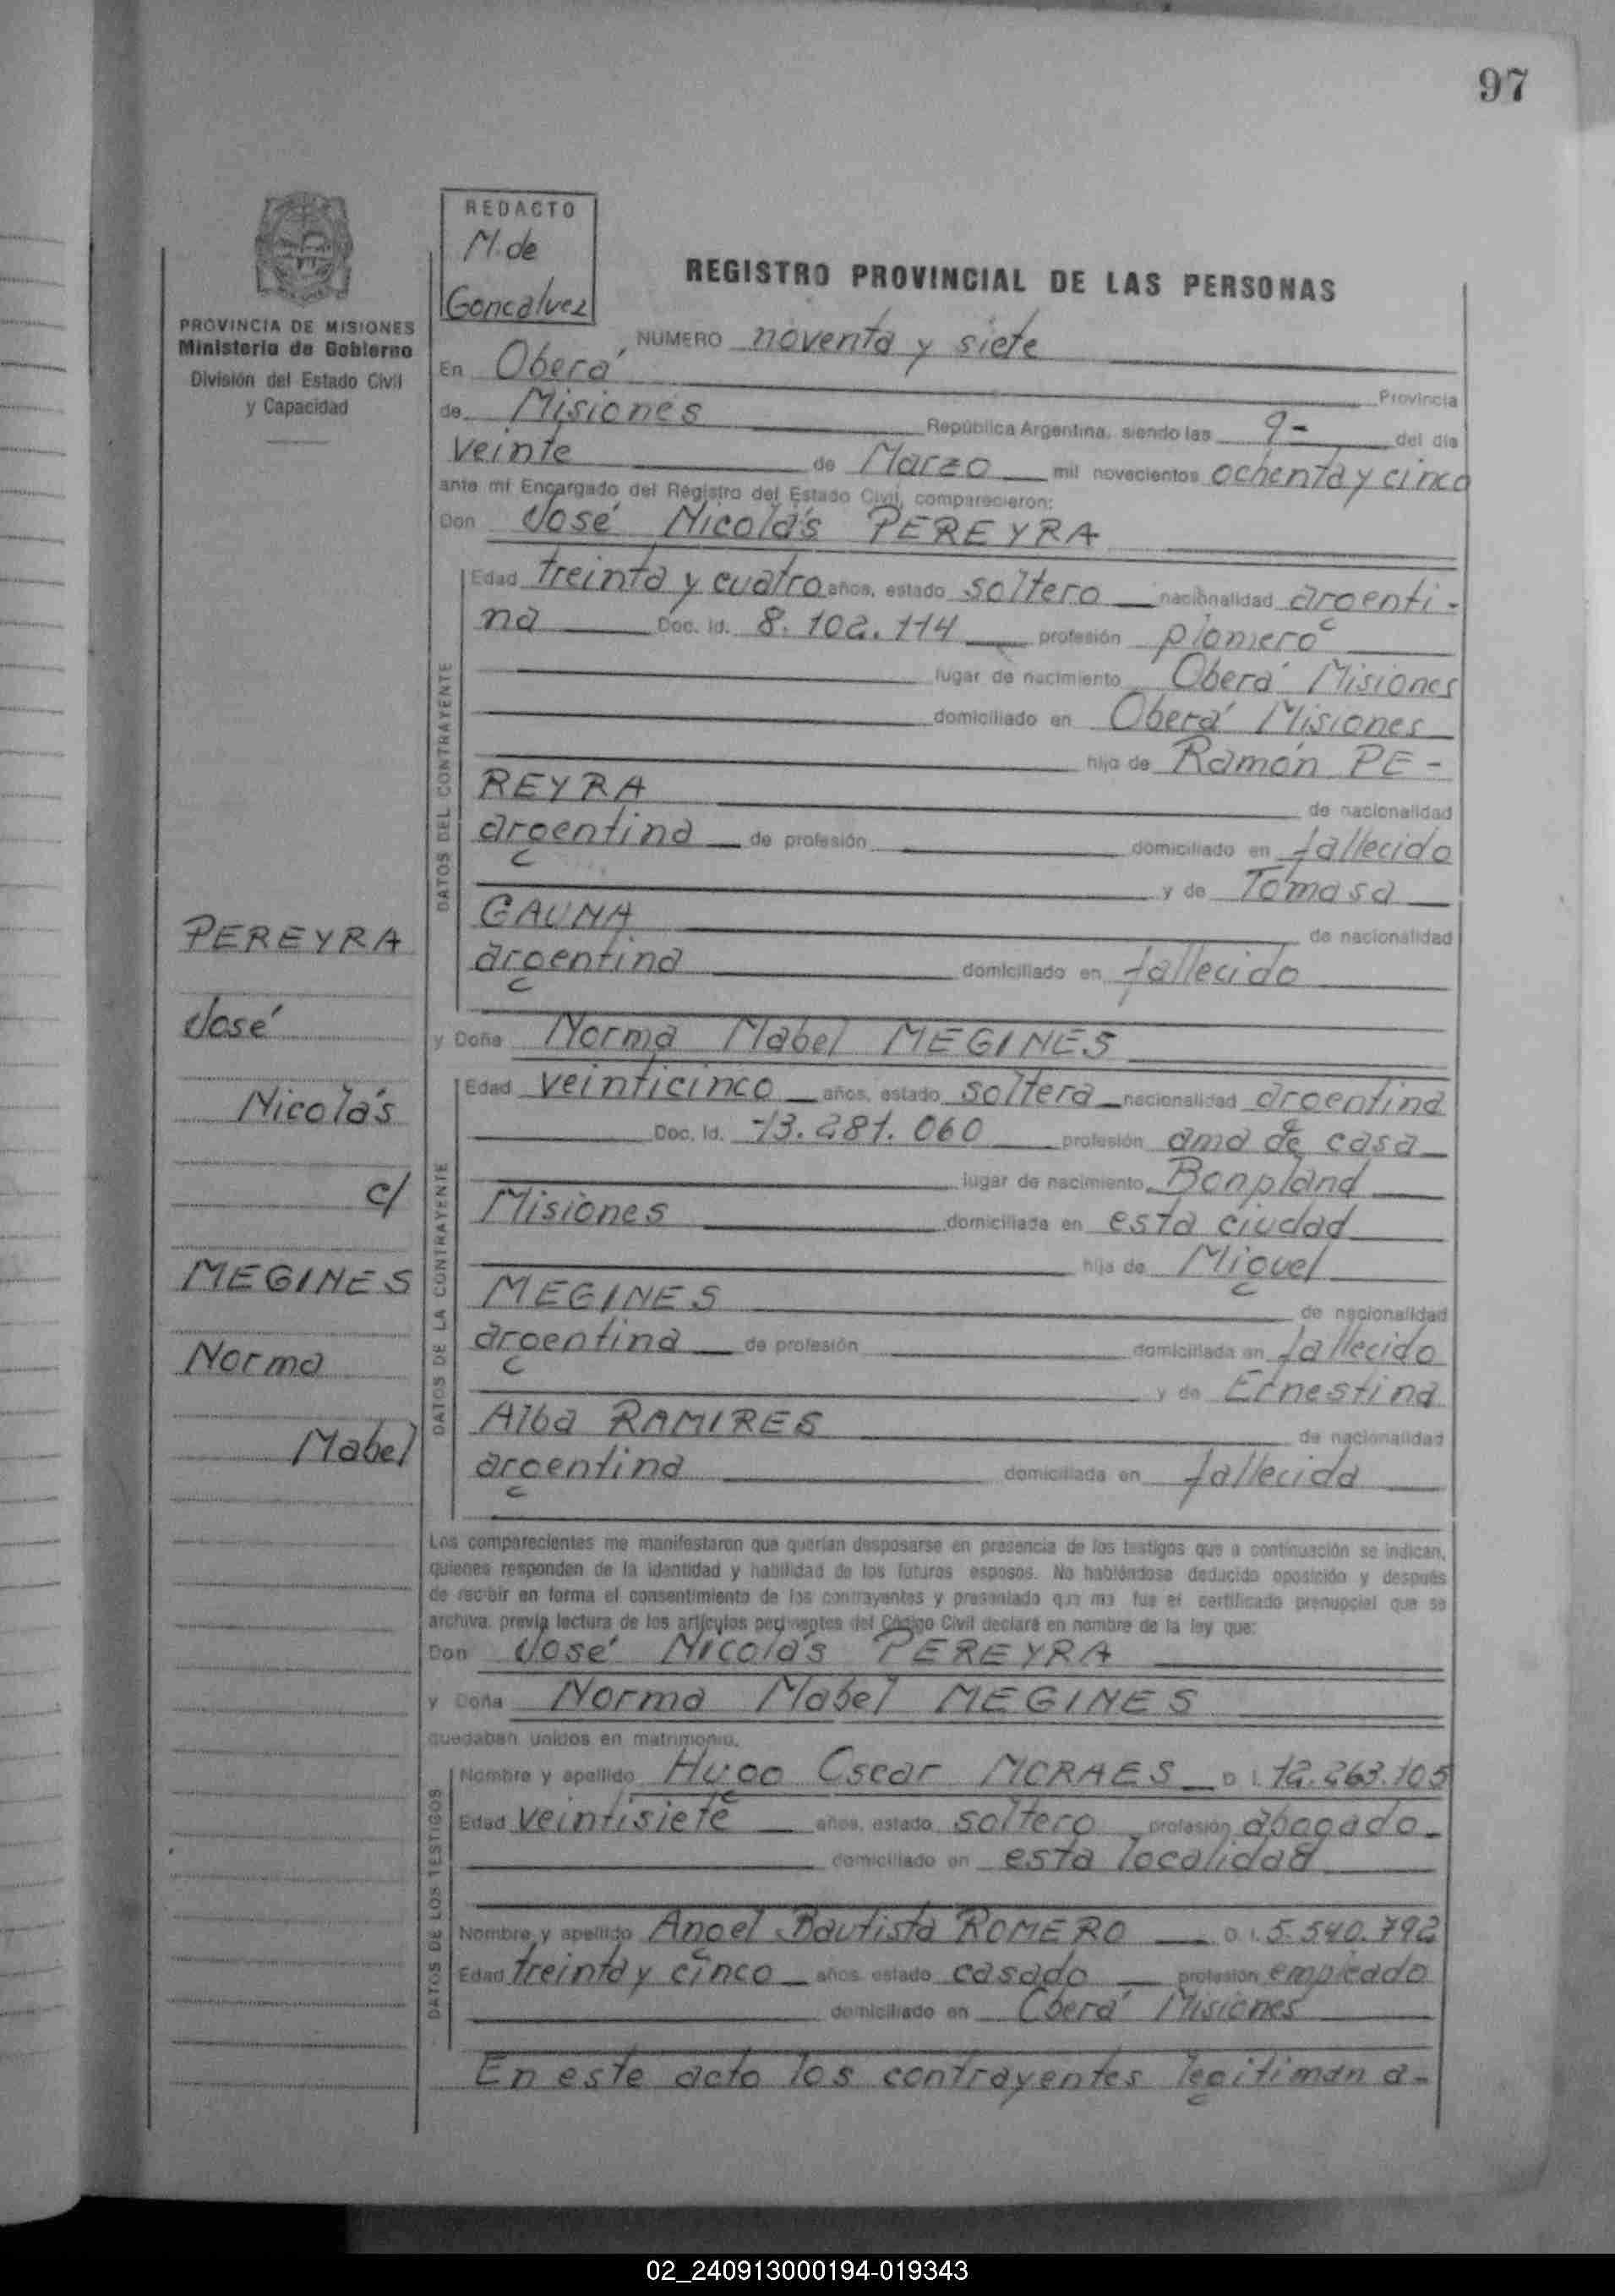 97
REDACTO
M. de
Goncalvez
PROVINCIA DE MISIONES
Ministerio de Gobierno
División del Estado Civil
y Capacidad
REGISTRO PROVINCIAL DE LAS PERSONAS
NUMERO noventa y siete
En Oberá Provincia
de Misiones República Argentina, siendo las 9- del día
veinte de Marzo mil novecientos ochenta y cinco
ante mí Encargado del Registro del Estado Civil, comparecieron:
Don José Nicolás PEREYRA
DATOS DEL CONTRAYENTE
Edad treinta y cuatro años, estado soltero nacionalidad argenti-
na Doc. Id. 8.102.114 profesión plomero
lugar de nacimiento Oberá Misiones
domiciliado en Oberá Misiones
hijo de Ramón PE-
REYRA de nacionalidad
argentina de profesión domiciliado en fallecido
y de Tomasa
GAUNA de nacionalidad
argentina domiciliado en fallecido
y Doña Norma Mabel MEGINES
DATOS DE LA CONTRAYENTE
Edad veinticinco años, estado soltera nacionalidad argentina
Doc. Id. 13.281.060 profesión ama de casa
lugar de nacimiento Bonpland
Misiones domiciliada en esta ciudad
hija de Miguel
MEGINES de nacionalidad
argentina de profesión domiciliada en fallecido
y de Ernestina
Alba RAMIRES de nacionalidad
argentina domiciliada en fallecida
PEREYRA
José
Nicolás
c/
MEGINES
Norma
Mabel
Los comparecientes me manifestaron que querían desposarse en presencia de los testigos que a continuación se indican,
quienes responden de la identidad y habilidad de los futuros esposos. No habiéndose deducido oposición y después
de recibir en forma el consentimiento de los contrayentes y presentado que me fue el certificado prenupcial que se
archiva, previa lectura de los artículos pertinentes del Código Civil declaré en nombre de la ley que:
Don José Nicolás PEREYRA
y Doña Norma Mabel MEGINES
quedaban unidos en matrimonio.
DATOS DE LOS TESTIGOS
Nombre y apellido Hugo Oscar MORAES D.I. 12.263.105
Edad veintisiete años, estado soltero profesión abogado
domiciliado en esta localidad
Nombre y apellido Angel Bautista ROMERO D.I. 5.540.792
Edad treinta y cinco años estado casado profesión empleado
domiciliado en Oberá Misiones
En este acto los contrayentes legitiman a-
02_240913000194-019343